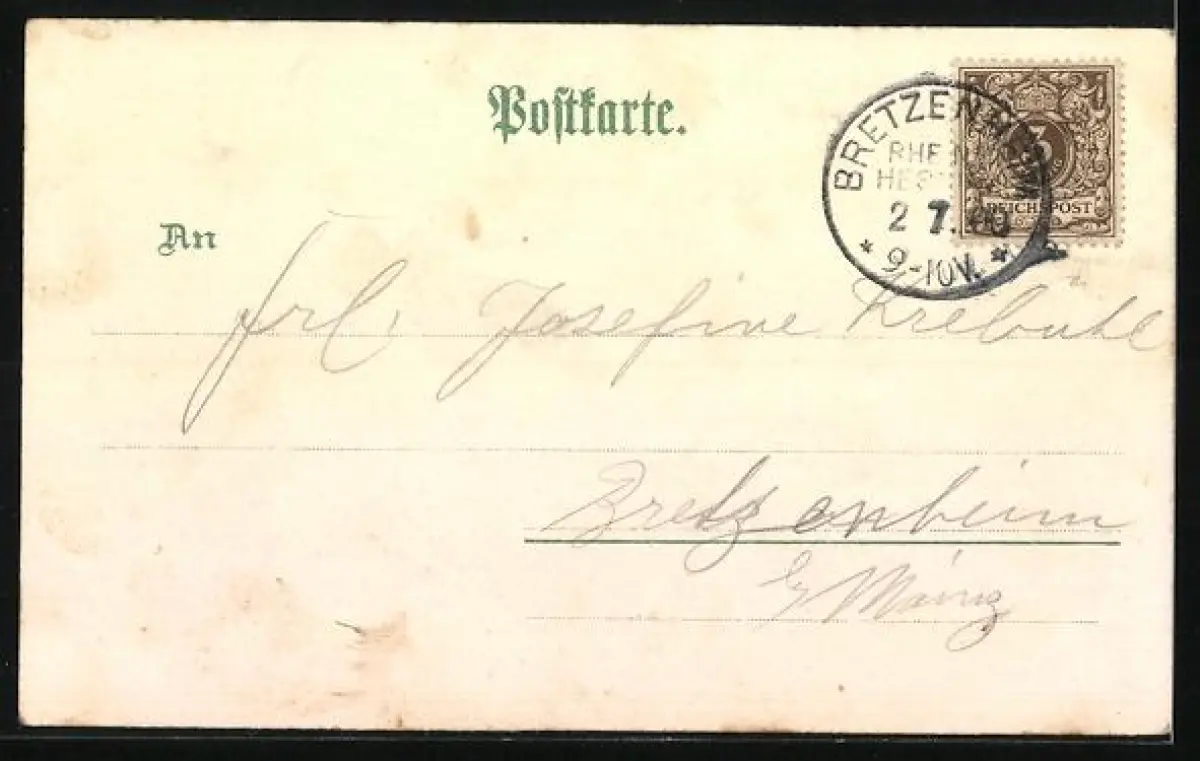 Postkarte.
BRETZENHEIM
RHEIN
HES
2 7.
* 9-10V. *
3
REICHSPOST
An
Frl. Josefine Krebühl
Bretzenheim
b/ Mainz